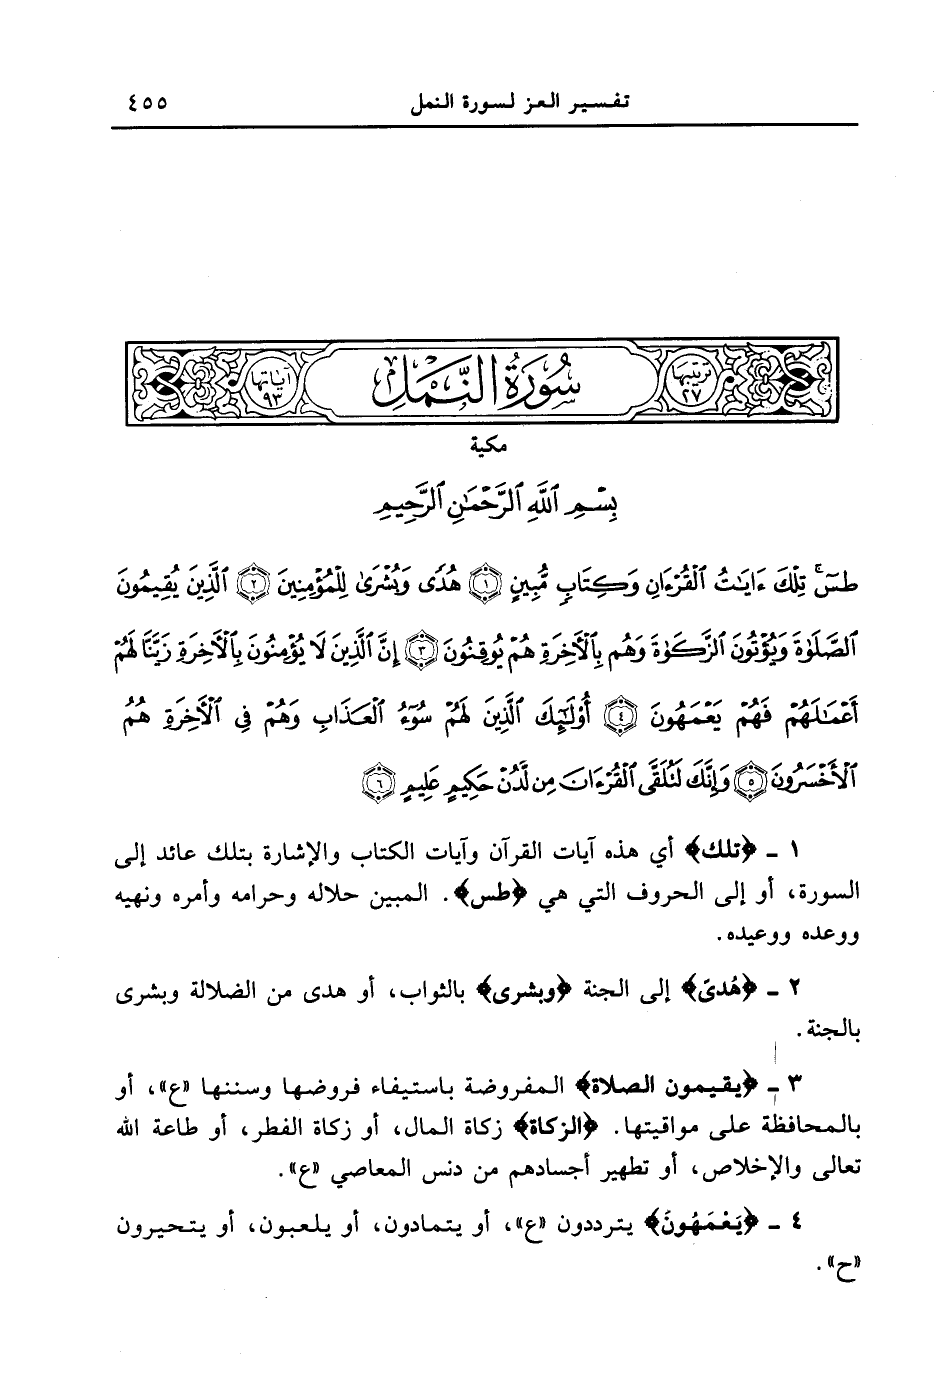 تفسير العز لسورة النمل ٤٥٥
ترتيبها ٢٧ سُورَةُ النَّمْلِ آياتها ٩٣
مكية
بِسْمِ ٱللَّهِ ٱلرَّحْمَٰنِ ٱلرَّحِيمِ
طسٓ تِلْكَ ءَايَٰتُ ٱلْقُرْءَانِ وَكِتَابٍ مُّبِينٍ ﴿١﴾ هُدًى وَبُشْرَىٰ لِلْمُؤْمِنِينَ ﴿٢﴾ ٱلَّذِينَ يُقِيمُونَ
ٱلصَّلَوٰةَ وَيُؤْتُونَ ٱلزَّكَوٰةَ وَهُم بِٱلْأَخِرَةِ هُمْ يُوقِنُونَ ﴿٣﴾ إِنَّ ٱلَّذِينَ لَا يُؤْمِنُونَ بِٱلْأَخِرَةِ زَيَّنَّا لَهُمْ
أَعْمَٰلَهُمْ فَهُمْ يَعْمَهُونَ ﴿٤﴾ أُوْلَٰٓئِكَ ٱلَّذِينَ لَهُمْ سُوٓءُ ٱلْعَذَابِ وَهُمْ فِى ٱلْأَخِرَةِ هُمُ
ٱلْأَخْسَرُونَ ﴿٥﴾ وَإِنَّكَ لَتُلَقَّى ٱلْقُرْءَانَ مِن لَّدُنْ حَكِيمٍ عَلِيمٍ ﴿٦﴾
١ ـ ﴿تلك﴾ أي هذه آيات القرآن وآيات الكتاب والإشارة بتلك عائد إلى
السورة، أو إلى الحروف التي هي ﴿طس﴾. المبين حلاله وحرامه وأمره ونهيه
ووعده ووعيده.
٢ ـ ﴿هُدىً﴾ إلى الجنة ﴿وبشرى﴾ بالثواب، أو هدى من الضلالة وبشرى
بالجنة.
٣ ـ ﴿يقيمون الصلاة﴾ المفروضة باستيفاء فروضها وسننها «ع»، أو
بالمحافظة على مواقيتها. ﴿الزكاة﴾ زكاة المال، أو زكاة الفطر، أو طاعة الله
تعالى والإخلاص، أو تطهير أجسادهم من دنس المعاصي «ع».
٤ ـ ﴿يَعْمَهُونَ﴾ يترددون «ع»، أو يتمادون، أو يلعبون، أو يتحيرون
«ح».